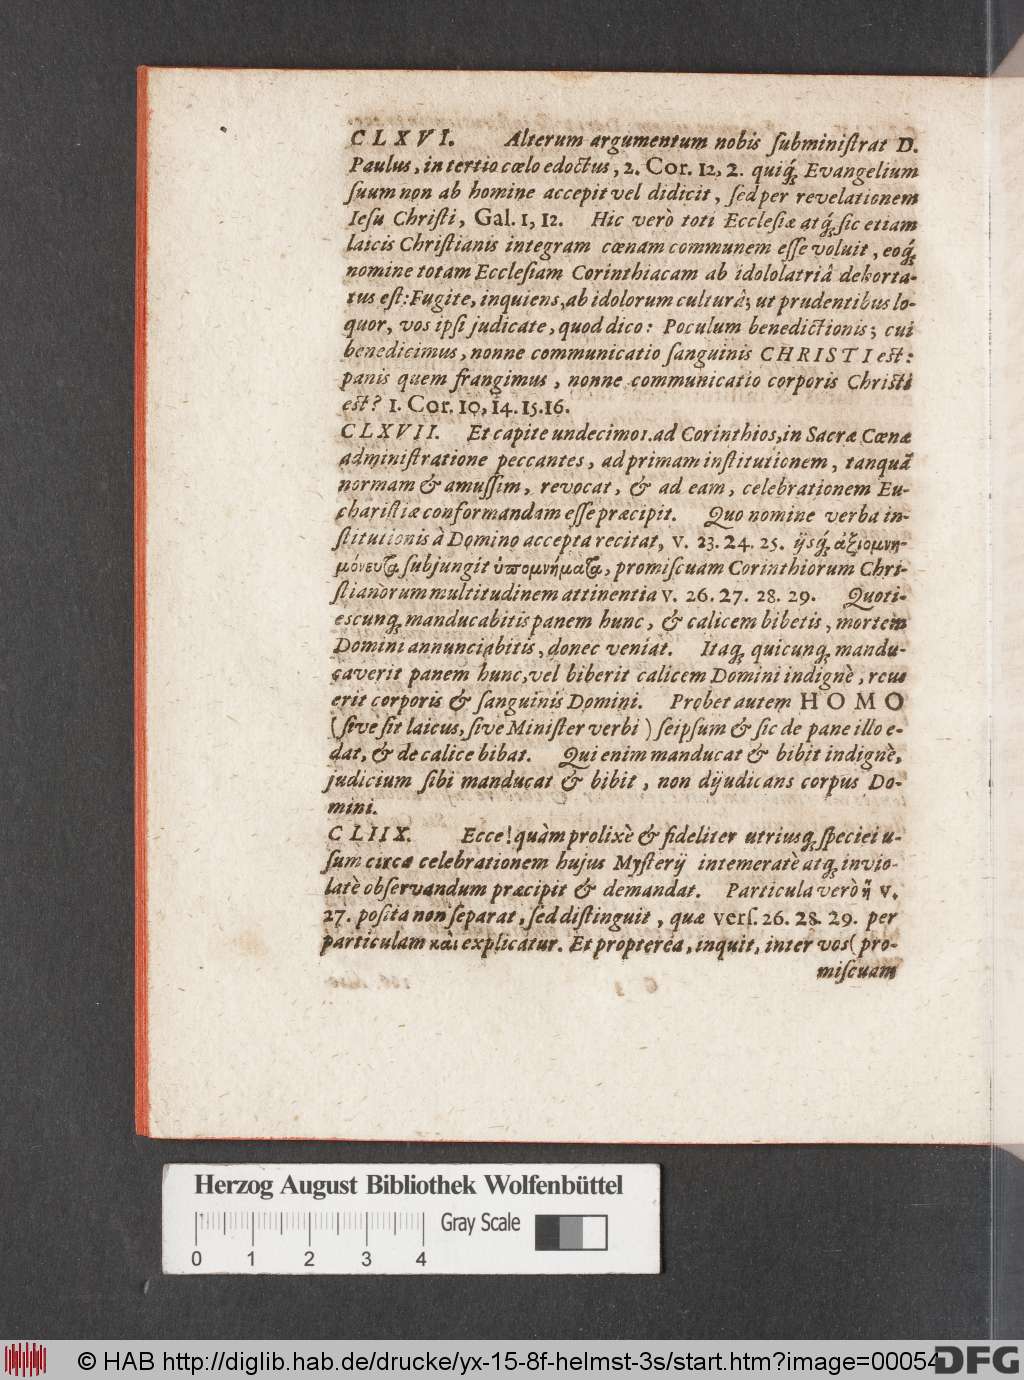 CLXVI. Alterum argumentum nobis ſubminiſtrat D.
Paulus, in tertio cœlo edoctus, 2. Cor. 12, 2. quiq́; Evangelium
ſuum non ab homine accepit vel didicit, ſed per revelationem
Ieſu Chriſti, Gal. 1, 12. Hic verò toti Eccleſiæ atq́; ſic etiam
laicis Chriſtianis integram cœnam communem eſſe voluit, eoq́;
nomine totam Eccleſiam Corinthiacam ab idololatriâ dehorta-
tus eſt: Fugite, inquiens, ab idolorum culturâ; ut prudentibus lo-
quor, vos ipſi judicate, quod dico: Poculum benedictionis; cui
benedicimus, nonne communicatio ſanguinis CHRISTI eſt:
panis quem frangimus, nonne communicatio corporis Chriſti
eſt? 1. Cor. 10, 14. 15. 16.
CLXVII. Et capite undecimo 1. ad Corinthios, in Sacræ Cœnæ
adminiſtratione peccantes, ad primam inſtitutionem, tanquã
normam & amuſſim, revocat, & ad eam, celebrationem Eu-
chariſtiæ conformandam eſſe præcipit. Quo nomine verba in-
ſtitutionis à Domino accepta recitat, v. 23. 24. 25. ijsq́; ἀξιομνη-
μόνευτα ſubjungit ὑπομνήματα, promiſcuam Corinthiorum Chri-
ſtianorum multitudinem attinentia v. 26. 27. 28. 29. Quoti-
escunq; manducabitis panem hunc, & calicem bibetis, mortem
Domini annunciabitis, donec veniat. Itaq; quicunq; mandu-
caverit panem hunc, vel biberit calicem Domini indignè, reus
erit corporis & ſanguinis Domini. Probet autem HOMO
(ſive ſit laicus, ſive Miniſter verbi) ſeipſum & ſic de pane illo e-
dat, & de calice bibat. Qui enim manducat & bibit indignè,
judicium ſibi manducat & bibit, non dijudicans corpus Do-
mini.
CLIIX. Ecce! quàm prolixè & fideliter utriusq; ſpeciei u-
ſum circa celebrationem hujus Myſterij intemeratè atq; invio-
latè obſervandum præcipit & demandat. Particula verò ἢ v.
27. poſita non ſeparat, ſed diſtinguit, quæ verſ. 26. 28. 29. per
particulam καὶ explicatur. Et propterea, inquit, inter vos (pro-
miſcuam
Herzog August Bibliothek Wolfenbüttel
Gray Scale
0 1 2 3 4
© HAB http://diglib.hab.de/drucke/yx-15-8f-helmst-3s/start.htm?image=00054
DFG